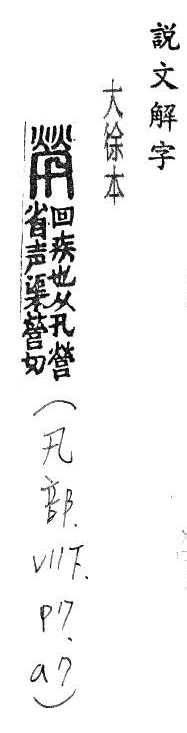 説文解字
大徐本
煢
回疾也从卂營
省声渠營切
(卂部. VII下. P7. a7)